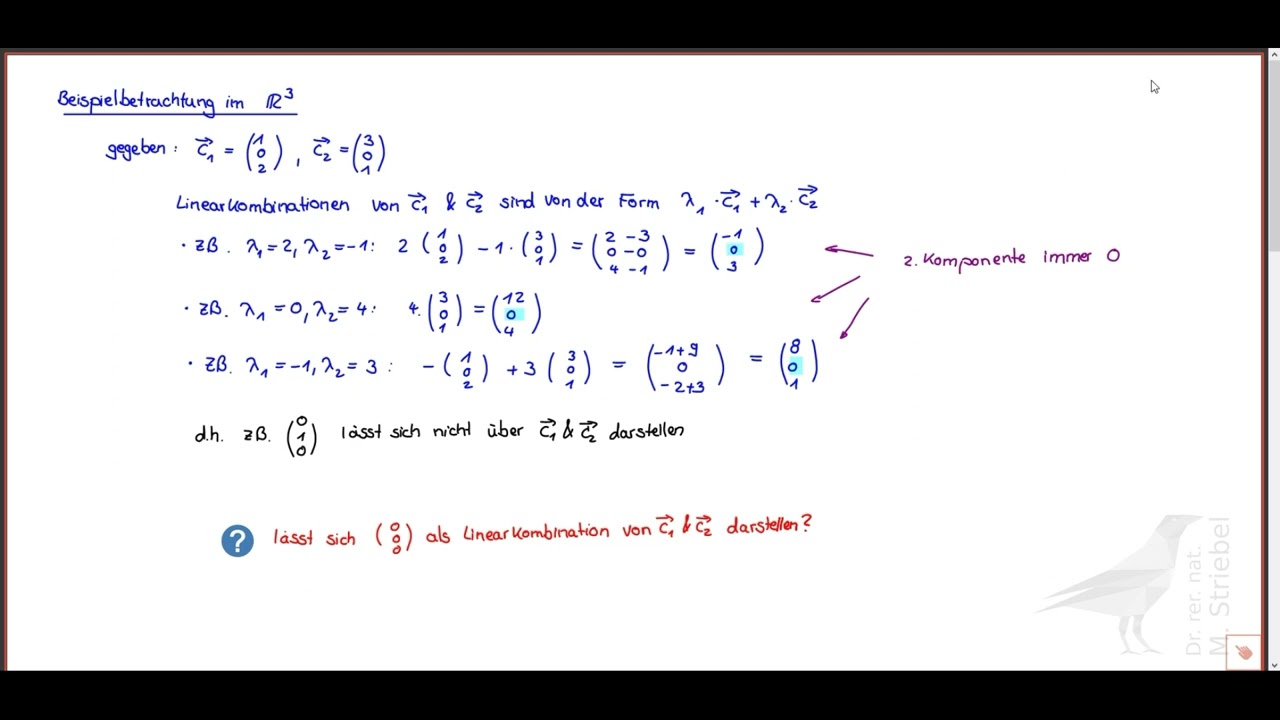 Beispielbetrachtung im ℝ³
gegeben: c⃗₁ = (1 0 2), c⃗₂ = (3 0 1)
Linearkombinationen von c⃗₁ & c⃗₂ sind von der Form λ₁ · c⃗₁ + λ₂ · c⃗₂
· zB. λ₁ = 2, λ₂ = −1: 2 (1 0 2) − 1 · (3 0 1) = (2 −3 0 −0 4 −1) = (−1 0 3)
2. Komponente immer 0
· zB. λ₁ = 0, λ₂ = 4: 4 · (3 0 1) = (12 0 4)
· zB. λ₁ = −1, λ₂ = 3: − (1 0 2) + 3 (3 0 1) = (−1+9 0 −2+3) = (8 0 1)
d.h. zB. (0 1 0) lässt sich nicht über c⃗₁ & c⃗₂ darstellen
? lässt sich (0 0 0) als Linearkombination von c⃗₁ & c⃗₂ darstellen?
Dr. rer. nat.
M. Striebel